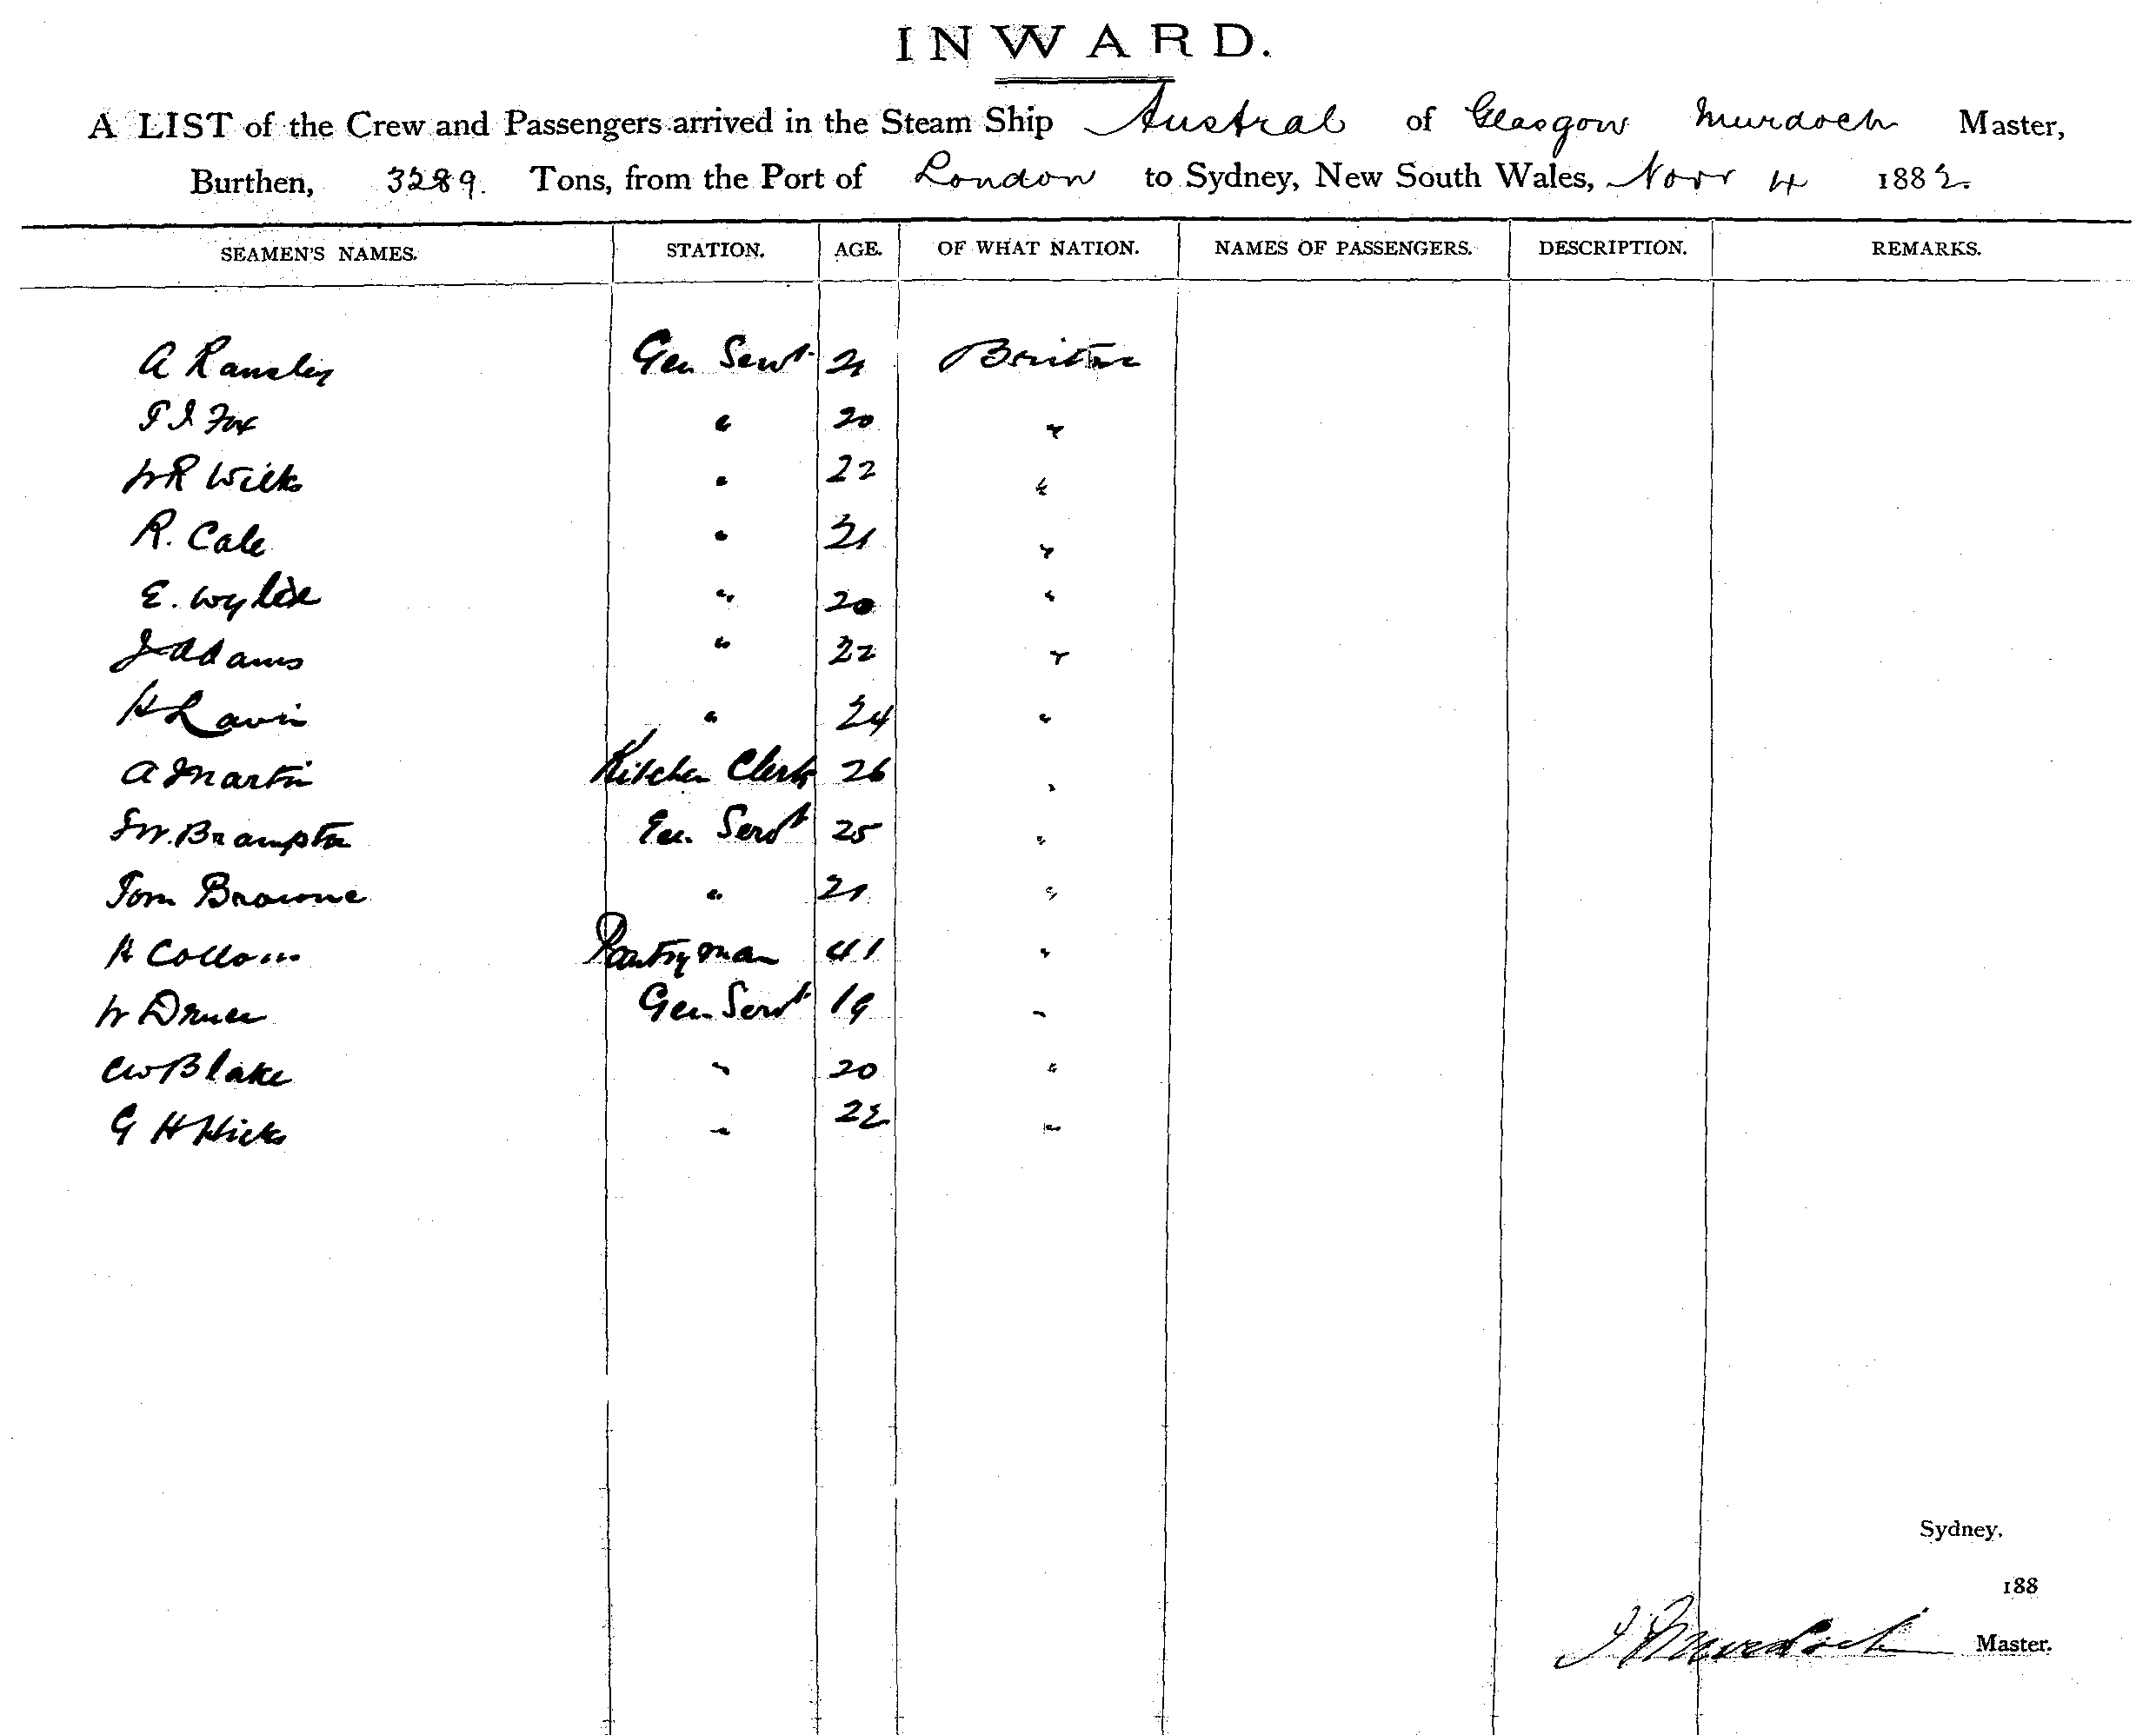 INWARD.
A LIST of the Crew and Passengers arrived in the Steam Ship Austral of Glasgow Murdoch Master,
Burthen, 3289. Tons, from the Port of London to Sydney, New South Wales, Novr 4 1882.
SEAMEN'S NAMES. STATION. AGE. OF WHAT NATION. NAMES OF PASSENGERS. DESCRIPTION. REMARKS.
A Ransley Gen Servt 21 Britain
T J Fox " 20 "
W R Wilks " 22 "
R. Cale " 21 "
E. Wylde " 20 "
J Adams " 22 "
H Lavin " 24 "
A Martin Kitchen Clerk 26 "
Brampton Gen. Servt 25 "
Tom Browne " 21 "
H Pantryman 41 "
W Druce Gen Servt 19 "
CW Blake " 20 "
G H Hicks " 22 "
Sydney,
188
J Murdoch Master.